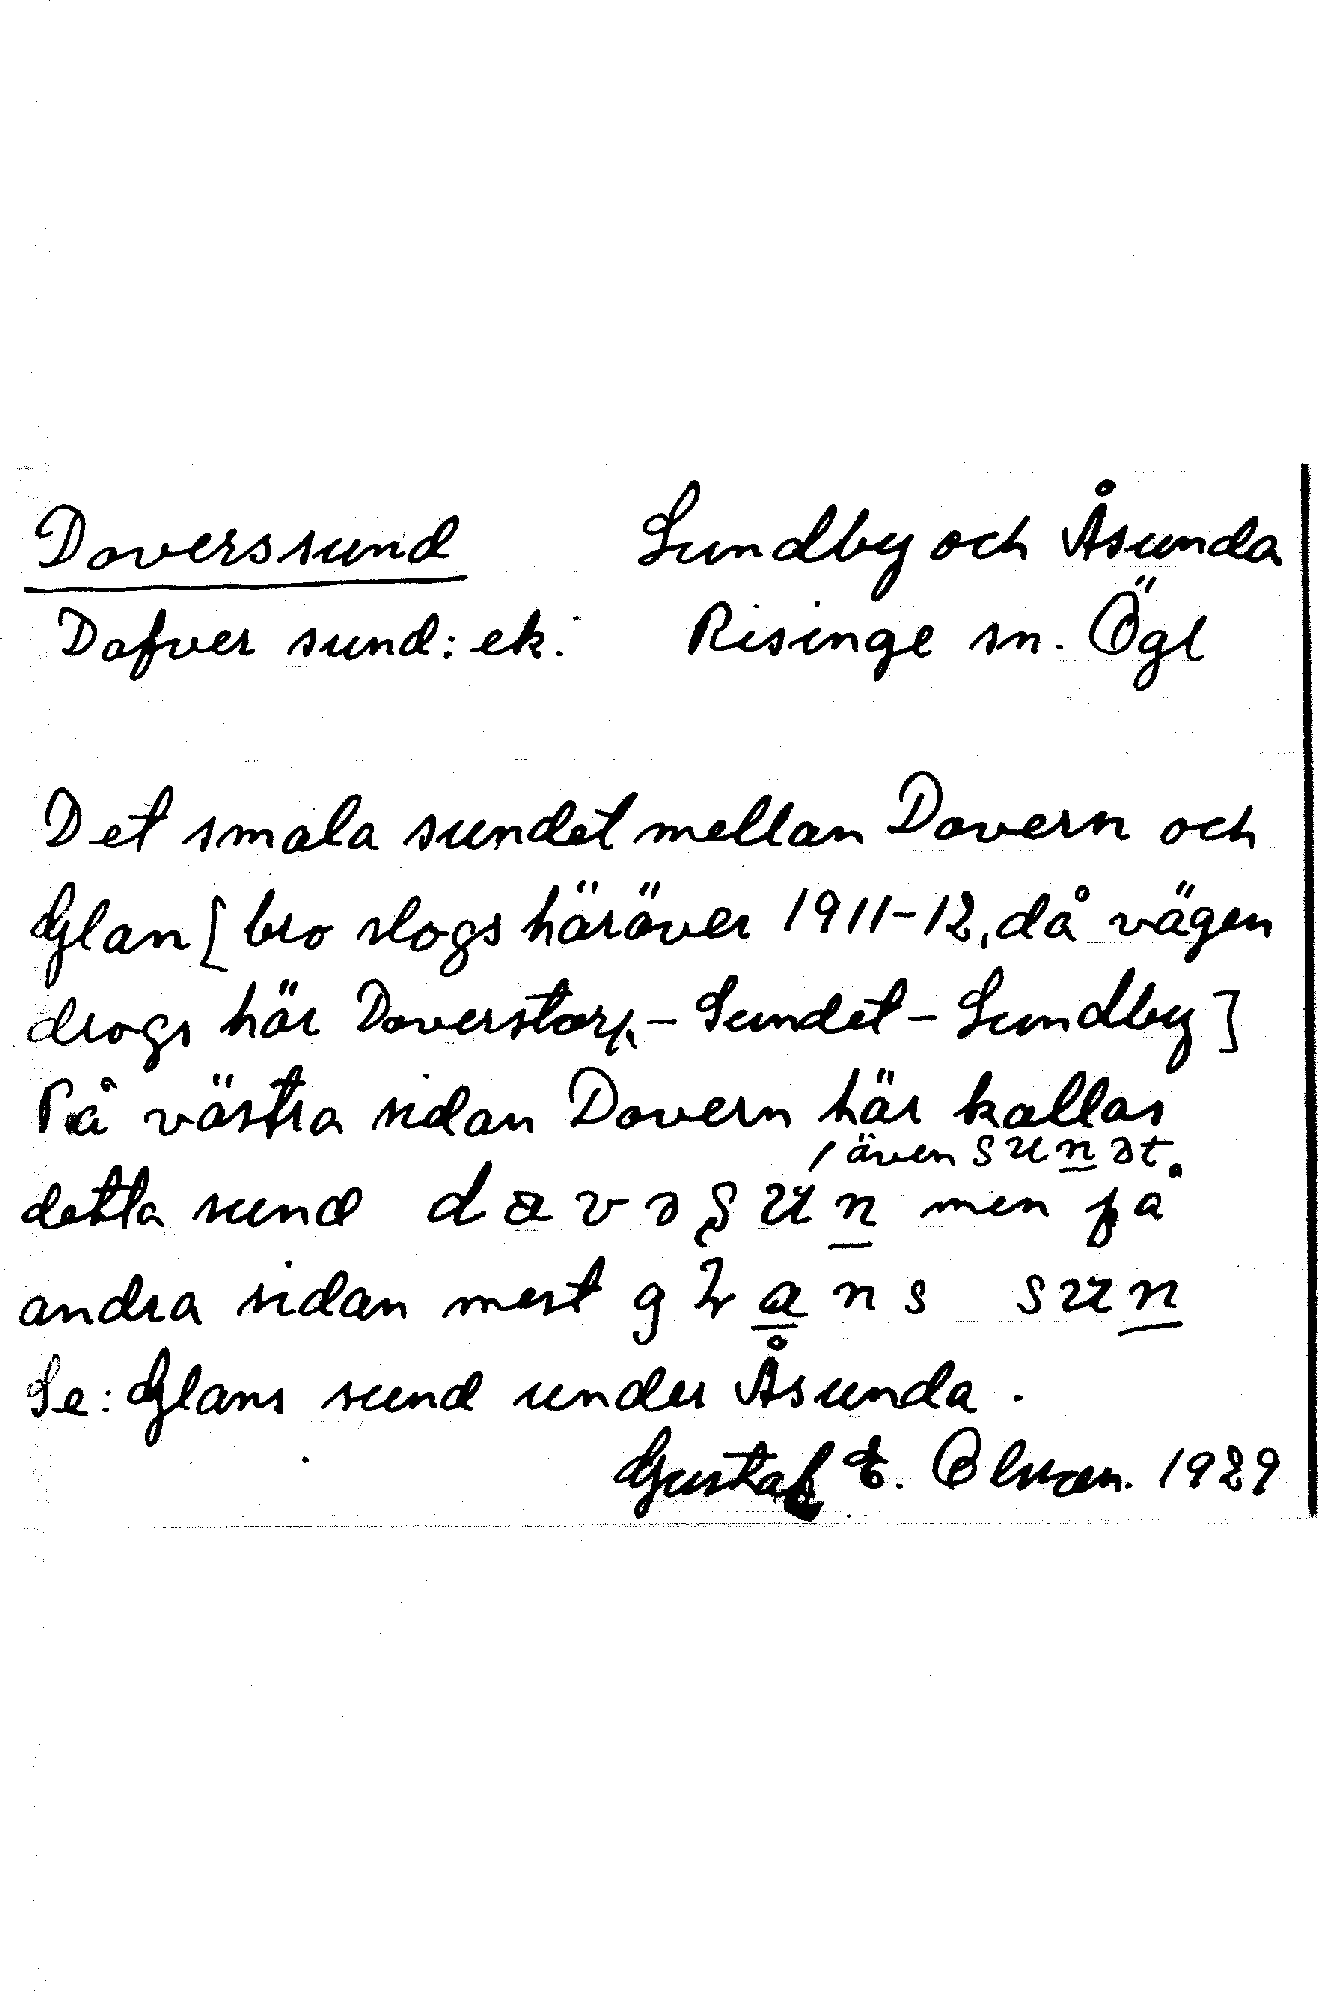 Doverssund Sundby och Åsunda
Dofver sund: ek. Risinge sn. Ögl
Det smala sundet mellan Dovern och
Glan [bro slogs häröver 1911-12, då vägen
drogs här Doverstorp - Sundet - Sundby]
På västra sidan Dovern här kallas
/ även sunət
detta sund davəşun men på
andra sidan mest glans sun
Se: Glans sund under Åsunda.
Gustaf E. 1929